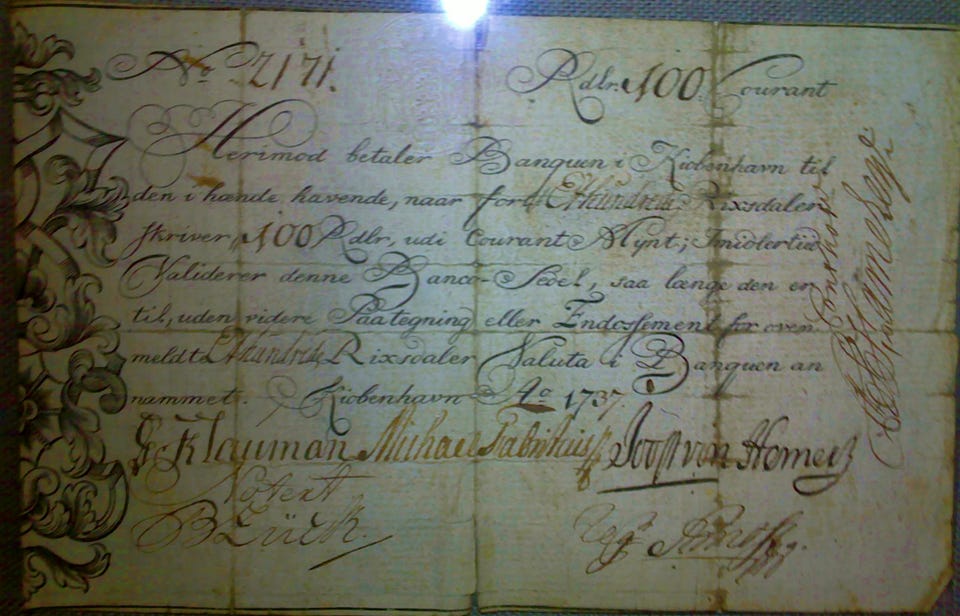 No 2171. Rdlr. 100. Courant
Herimod betaler Banquen i Kiøbenhavn til
den i hænde havende, naar for Ethundrede Rixsdaler
skriver, 100 Rdlr, udi Courant Mynt; Imidlertiid
Validerer denne Banco-Sedel, saa længe den er
til, uden videre Paategning eller Endossement for oven
meldte Ethundrede Rixsdaler Valuta i Banquen an
nammet. Kiøbenhavn Ao 1737.
Klauman Michael Fabritius Joost von Hemert
Notert
BLück.